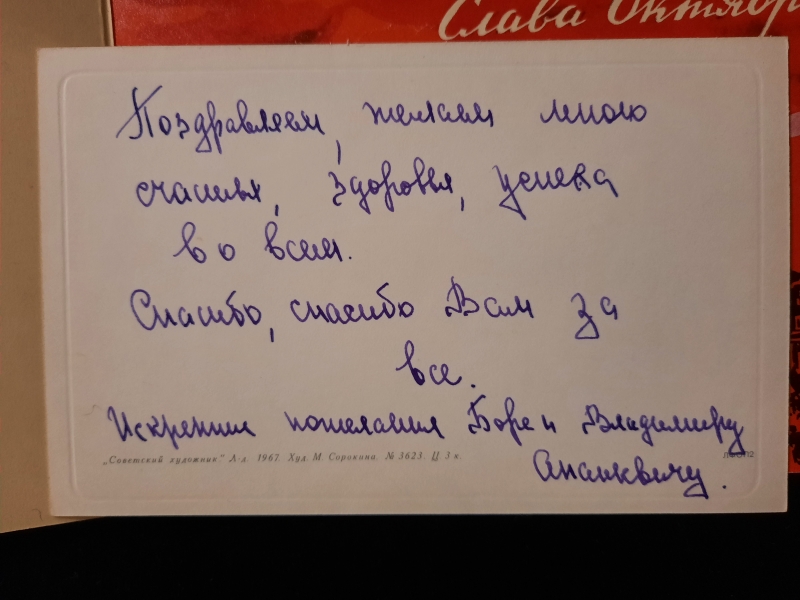 Слава Октябр
Поздравляем, желаем много
счастья, здоровья, успеха
во всем.
Спасибо, спасибо Вам за
все.
Искренние пожелания Боре и Владимиру
„Советский художник.“ Л-д. 1967. Худ. М. Сорокина. № 3623. Ц. 3 к.